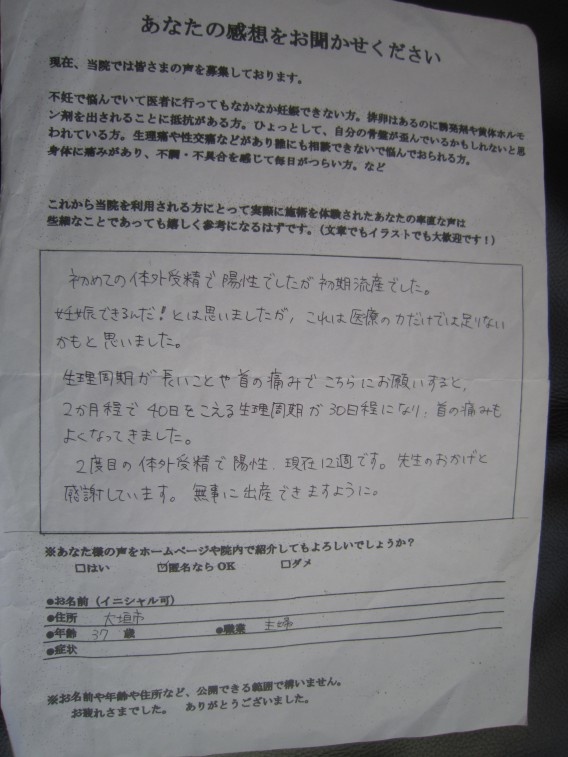 あなたの感想をお聞かせください
現在、当院では皆さまの声を募集しております。
不妊で悩んでいて医者に行ってもなかなか妊娠できない方。排卵はあるのに誘発剤や黄体ホルモ
ン剤を出されることに抵抗がある方。ひょっとして、自分の骨盤が歪んでいるかもしれないと思
われている方。生理痛や性交痛などがあり誰にも相談できないで悩んでおられる方。
身体に痛みがあり、不調・不具合を感じて毎日がつらい方。など
これから当院を利用される方にとって実際に施術を体験されたあなたの率直な声は
些細なことであっても嬉しく参考になるはずです。(文章でもイラストでも大歓迎です!)
初めての体外受精で陽性でしたが初期流産でした。
妊娠できるんだ!とは思いましたが、これは医療の力だけでは足りない
かもと思いました。
生理周期が長いことや首の痛みでこちらにお願いすると、
2か月程で40日をこえる生理周期が30日程になり、首の痛みも
よくなってきました。
2度目の体外受精で陽性、現在12週です。先生のおかげと
感謝しています。無事に出産できますように。
※あなた様の声をホームページや院内で紹介してもよろしいでしょうか?
□はい ☑匿名ならOK □ダメ
●お名前(イニシャル可)
●住所 大垣市
●年齢 37 歳 ●職業 主婦
●症状
※お名前や年齢や住所など、公開できる範囲で構いません。
お疲れさまでした。 ありがとうございました。